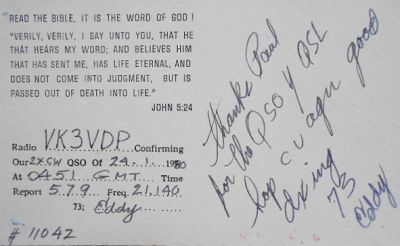 READ THE BIBLE, IT IS THE WORD OF GOD !
"VERILY, VERILY, I SAY UNTO YOU, THAT HE
THAT HEARS MY WORD; AND BELIEVES HIM
THAT HAS SENT ME, HAS LIFE ETERNAL, AND
DOES NOT COME INTO JUDGMENT, BUT IS
PASSED OUT OF DEATH INTO LIFE."
JOHN 5:24
Radio VK3VDP Confirming
Our 2XCW QSO Of 24.1.1980
At 0451 GMT Time
Report 5.7.9 Freq. 21,140
73; Eddy
# 11042
thanks Paul
for the QSO & QSL
hop cu agn good
dxing
73
Eddy